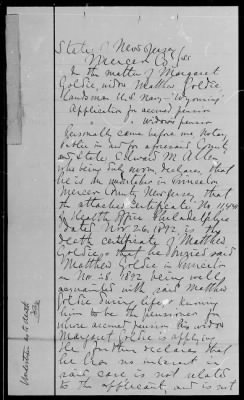 State of New Jersey
Mercer Co. ss
In the matter of Margaret
Goldie, widow Matthew Goldie
Landsman U.S. Navy "Wyoming"
Application for accrued pension
" " widows pension
Personally came before me Notary
Public in and for aforesaid County
and State, Edward M. Allen
who being duly sworn, declares, that
he is an undertaker in Princeton
Mercer County New Jersey, that
the attached certificate, No 11,498
in Health Office Philadelphia
dated Nov 26, 1892, is the
death certificate of Matthew
Goldie, that he buried said
Matthew Goldie in Princeton
on Nov 28, 1892, being well
acquainted with said Matthew
Goldie during life, & knowing
him to be the pensioner for
whose accrued pension his widow
Margaret Goldie is applying
He further declares that
he has no interest in
said case is not related
to the applicant, and is not
Undertaker as to death